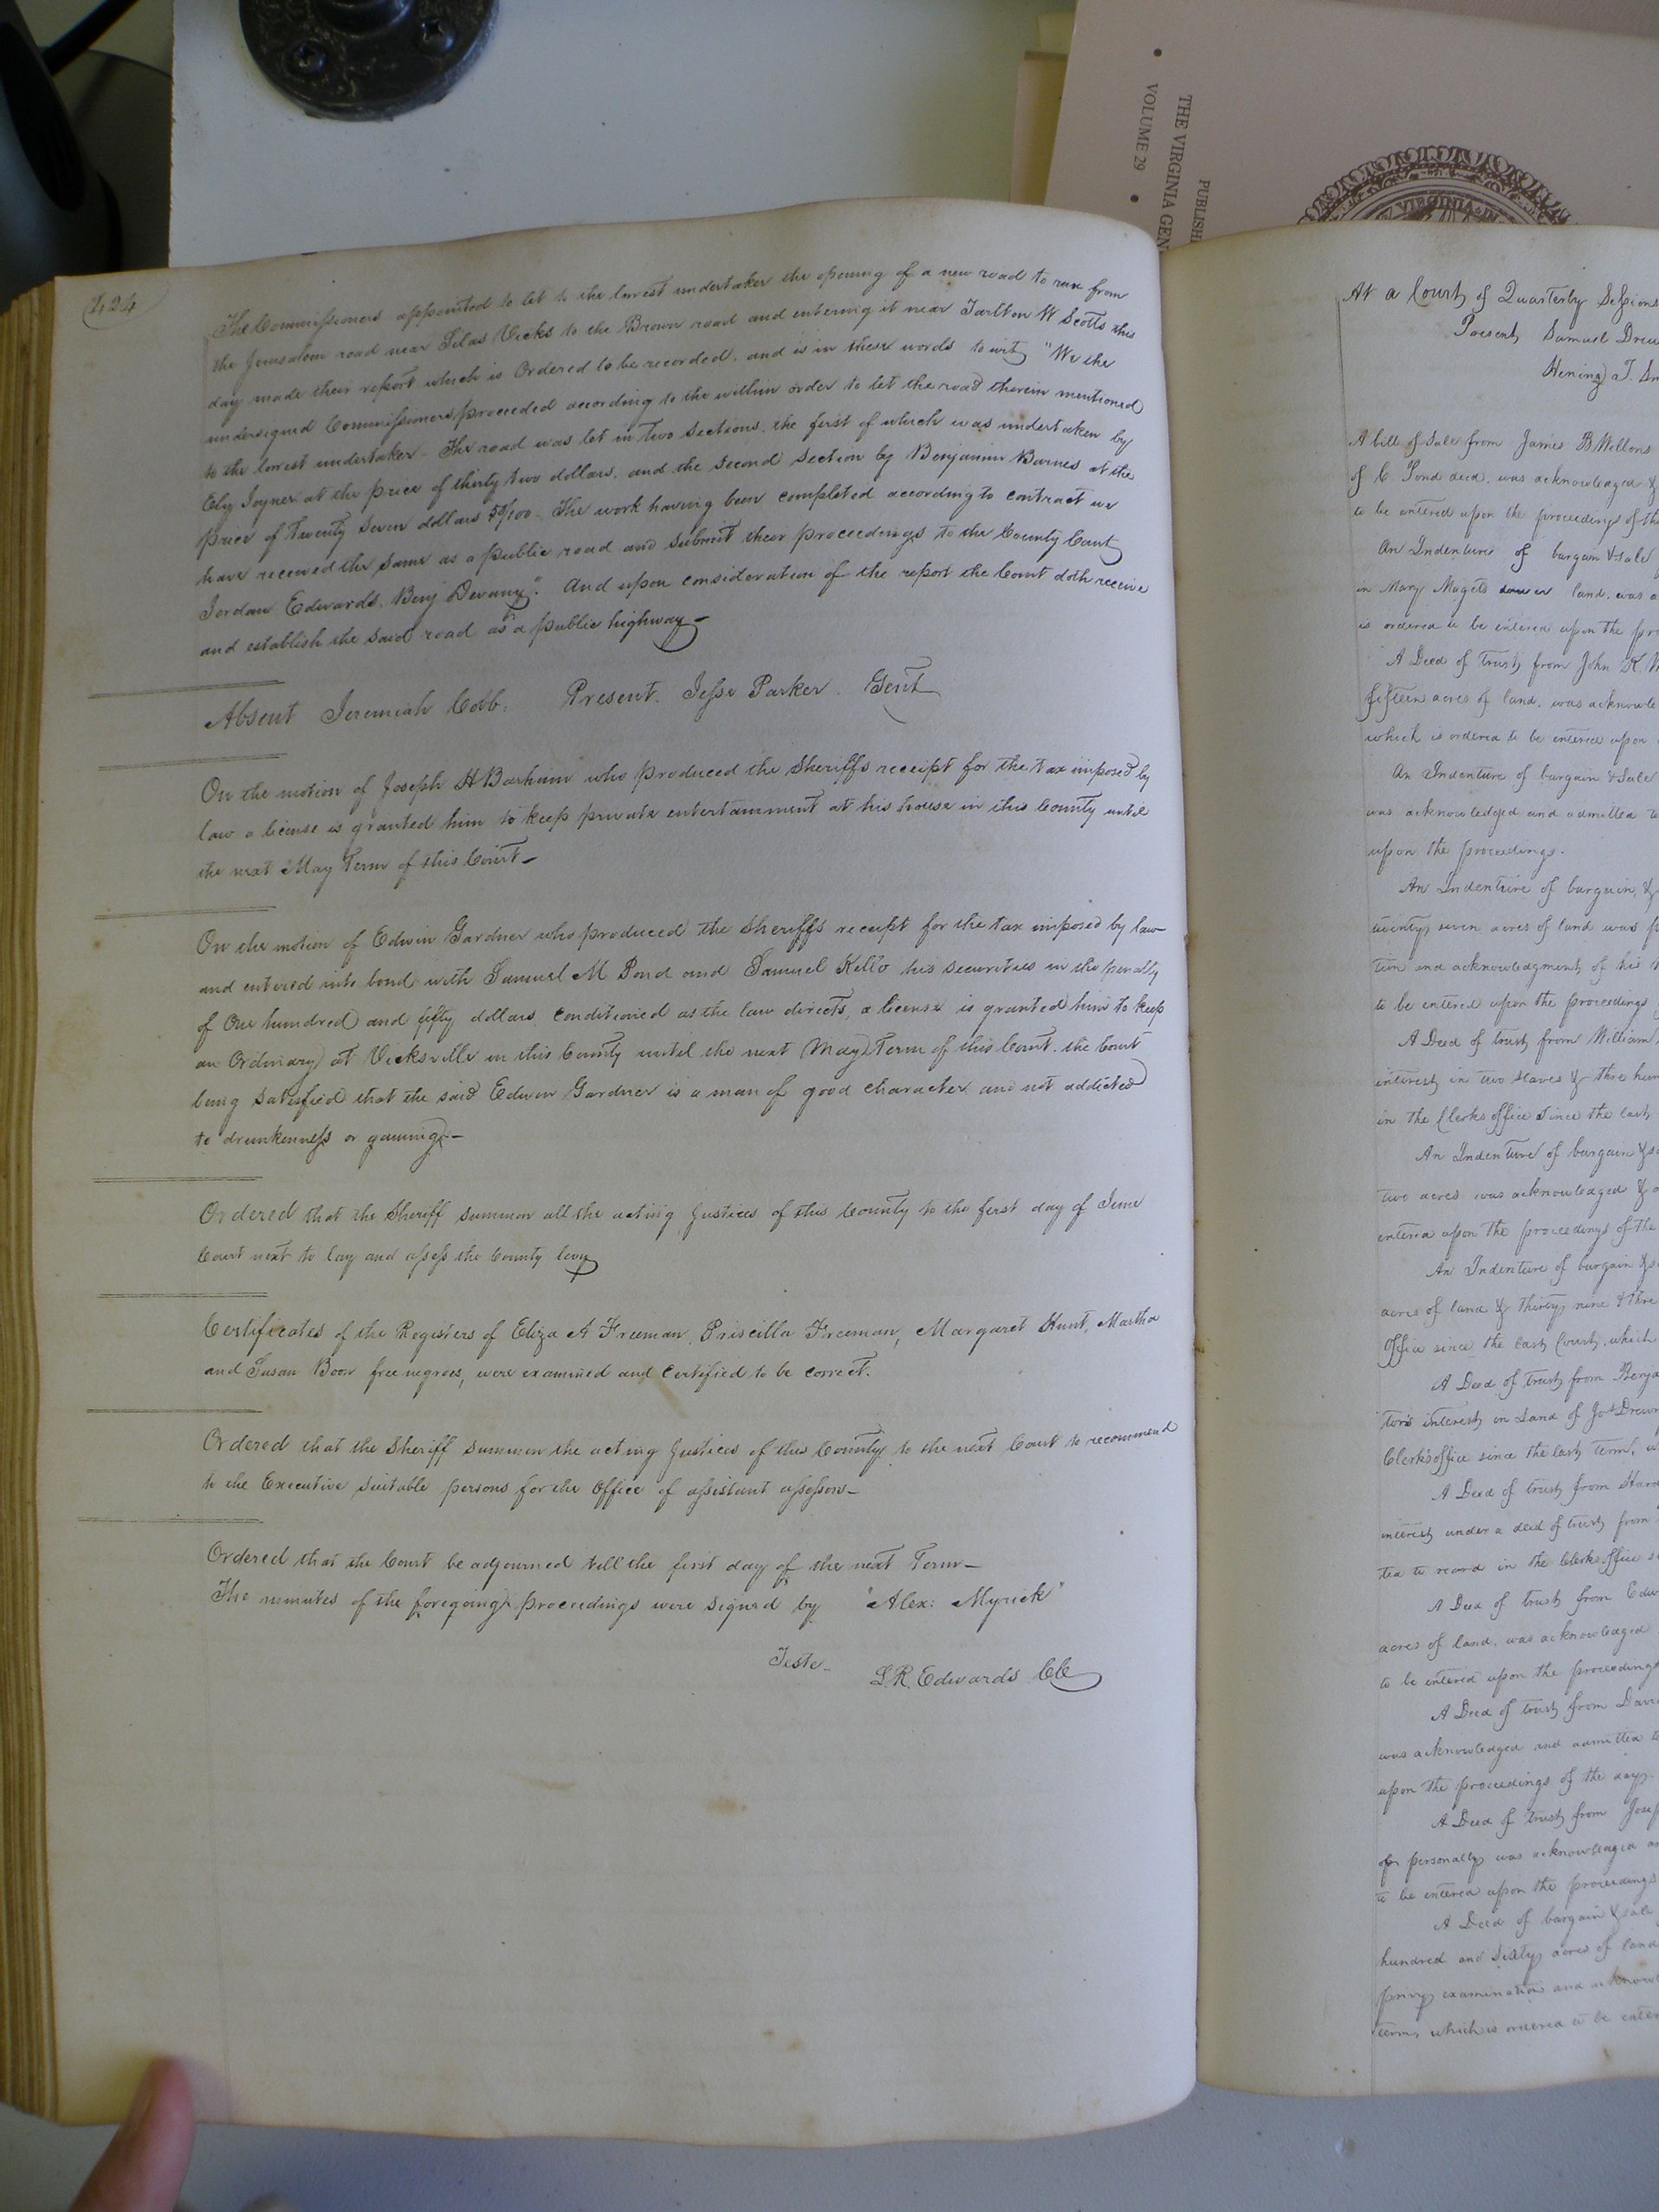 PUBLISH
THE VIRGINIA GEN
VOLUME 29
VIRGINIA IN
424
The Commissioners appointed to let to the lowest undertaker the opening of a new road to run from
the Jerusalem road near Silas Vicks to the Brown road and entering it near Tarlton W Scotts this
day made their report which is Ordered to be recorded, and is in these words to wit, "We the
undersigned Commissioners proceeded according to the within order to let the road therein mentioned
to the lowest undertaker - The road was let in two sections, the first of which was undertaken by
Ely Joyner at the price of thirty two dollars, and the second section by Benjamin Barnes at the
price of twenty seven dollars 50/100 - The work having been completed according to contract we
have received the same as a public road and submit these proceedings to the County Court
Jordan Edwards, Benj Devany". And upon consideration of the report the Court doth receive
and establish the said road as a public highway -
Absent Jeremiah Cobb. Present. Jesse Parker. Gent
On the motion of Joseph H Barham who produced the Sheriffs receipt for the tax imposed by
law a license is granted him to keep private entertainment at his house in this County until
the next May Term of this Court -
On the motion of Edwin Gardner who produced the Sheriffs receipt for the tax imposed by law
and entered into bond with Samuel M Pond and Samuel Kello his securities in the penalty
of One hundred and fifty dollars, conditioned as the law directs, a license is granted him to keep
an Ordinary at Vicksville in this County until the next May Term of this Court, the Court
being satisfied that the said Edwin Gardner is a man of good character and not addicted
to drunkenness or gaming -
Ordered that the Sheriff summon all the acting Justices of this County to the first day of June
Court next to lay and assess the County levy
Certificates of the Registers of Eliza A Freeman, Priscilla Freeman, Margaret Hunt, Martha
and Susan Boon free negroes, were examined and certified to be correct.
Ordered that the Sheriff summon the acting Justices of this County to the next Court to recommend
to the Executive suitable persons for the Office of assistant assessors -
Ordered that the Court be adjourned till the first day of the next Term -
The minutes of the foregoing proceedings were signed by "Alex: Myrick"
Teste -
L. R. Edwards CC
At a Court of Quarterly Sessions
Present, Samuel Drew
Hening T. Sm
A bill of Sale from James B Mellons
of C Pond deed, was acknowledged &
to be entered upon the proceedings of th
An Indenture of bargain & sale
in Mary Magets dower land, was a
is ordered to be entered upon the pro
A Deed of Trust from John K. W
fifteen acres of land, was acknowle
which is ordered to be entered upon
An Indenture of bargain & sale
was acknowledged and admitted to
upon the proceedings.
An Indenture of bargain, &
twenty seven acres of land was p
tion and acknowledgment of his
to be entered upon the proceedings
A Deed of trust from William
interest in two slaves & three hun
in the Clerks office since the last
An Indenture of bargain & sa
two acres was acknowledged & a
entered upon the proceedings of the
An Indenture of bargain & sa
acres of land & thirty nine & thre
Office since the last Court, which
A Deed of trust from Benja
tors interest in Land of Jos Drewr
Clerks office since the last term, w
A Deed of trust from Hard
interest under a deed of trust from
ted to record in the Clerks office s
A Deed of trust from Edw
acres of land, was acknowledged
to be entered upon the proceedings
A Deed of trust from Davi
was acknowledged and admitted to
upon the proceedings of the day.
A Deed of trust from Josep
of personalty was acknowledged a
to be entered upon the proceedings
A Deed of bargain & sale
hundred and sixty acres of land
privy examination and acknowl
term, which is ordered to be enter